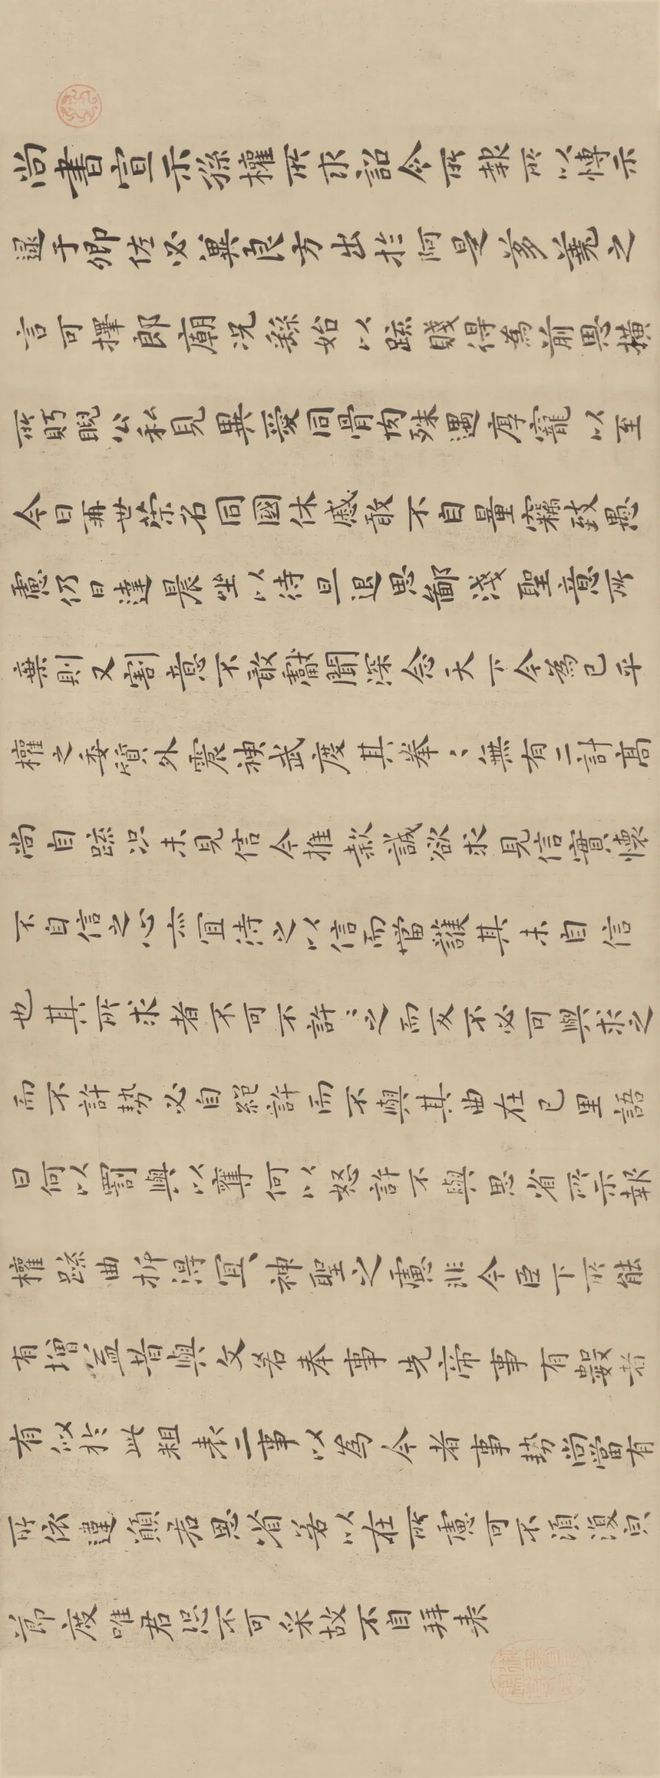 尚書宣示孫權所求詔令所報所以博示
逮于卿佐必冀良方出於阿是芻蕘之
言可擇郎廟況繇始以疏賤得為前恩橫
所眄睨公私見異愛同骨肉殊遇厚寵以至
今日再世榮名同國休慼敢不自量竊致愚
慮仍日達晨坐以待旦退思鄙淺聖意所
棄則又割意不敢獻聞深念天下今為已平
權之委質外震神武度其拳〻無有二計高
尚自疏況未見信今推款誠欲求見信實懷
不自信之心亦宜待之以信而當護其未自信
也其所求者不可不許〻之而反不必可與求之
而不許勢必自絕許而不與其曲在己里語
曰何以罰與以奪何以怒許不與思省所示報
權疏曲折得宜〻神聖之慮非今臣下所能
有增益昔與文若奉事先帝事有數者
有似於此粗表二事以為今者事勢尚當有
所依違願君思省若以在所慮可不須復皃
節度唯君恐不可采故不自拜表